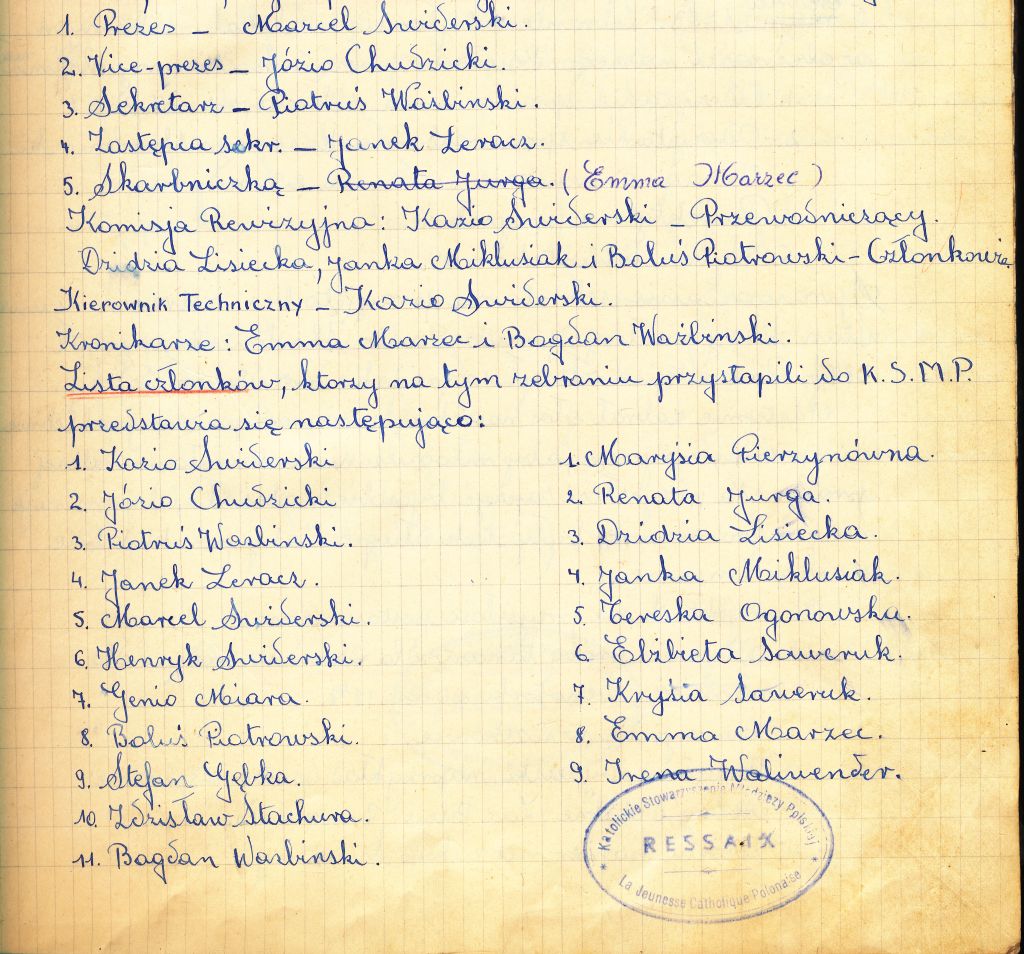 1. Prezes – Marcel Swiderski.
2. Vice-prezes – Józio Chudzicki.
3. Sekretarz – Piotruś Waźbinski.
4. Zastępca sekr. – Janek Leracz.
5. Skarbniczką – Renata Jurga. (Emma Marzec)
Komisja Rewizyjna: Kazio Swiderski – Przewodniczący.
Dzidzia Lisiecka, Janka Miklusiak i Boluś Piotrowski – Członkowie.
Kierownik Techniczny – Kazio Swiderski.
Kronikarze: Emma Marzec i Bogdan Waźbinski.
Lista członków, ktorzy na tym zebraniu przystąpili do K.S.M.P.
przedstawia się następująco:
1. Kazio Swiderski
2. Józio Chudzicki
3. Piotruś Wazbinski.
4. Janek Leracz.
5. Marcel Swiderski.
6. Henryk Swiderski.
7. Genio Miara.
8. Boluś Piotrowski.
9. Stefan Gębka.
10. Zdzisław Stachura.
11. Bogdan Wazbinski.
1. Maryśia Pierzynówna.
2. Renata Jurga.
3. Dzidzia Lisiecka.
4. Janka Miklusiak.
5. Tereska Ogonowska.
6. Elżbieta Saweruk.
7. Kryśia Saweruk.
8. Emma Marzec.
9. Irena Waliwender.
* Katolickie Stowarzyszenie Młodzieży Polskiej *
RESSAIX
La Jeunesse Catholique Polonaise